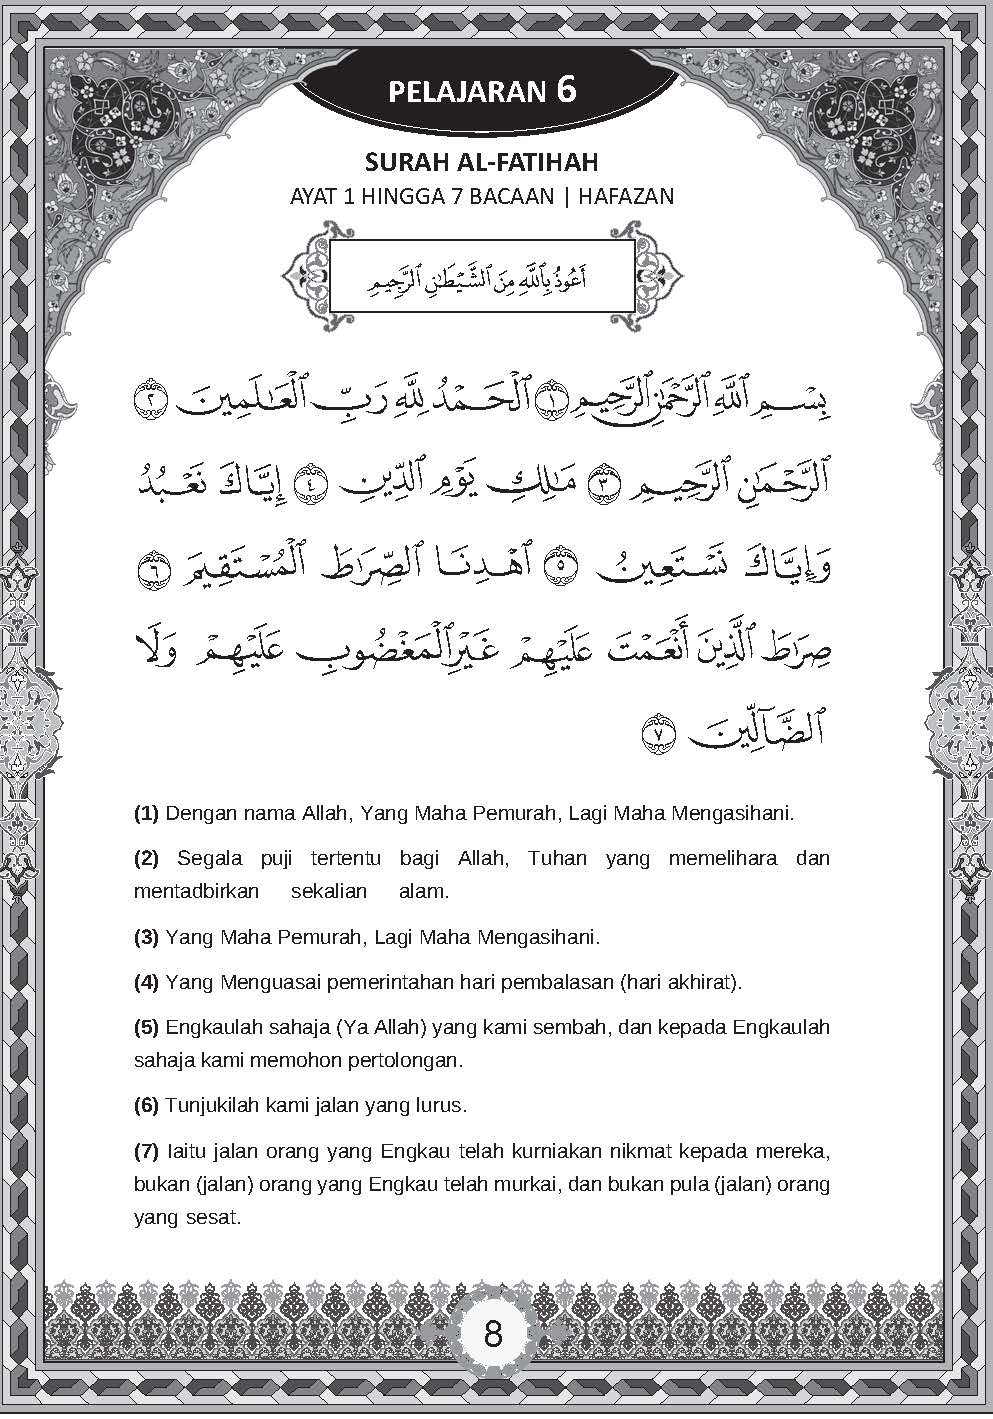 PELAJARAN 6
SURAH AL-FATIHAH
AYAT 1 HINGGA 7 BACAAN | HAFAZAN
أَعُوذُ بِٱللَّهِ مِنَ ٱلشَّيْطَـٰنِ ٱلرَّجِيمِ
بِسْمِ ٱللَّهِ ٱلرَّحْمَـٰنِ ٱلرَّحِيمِ ١ ٱلْحَمْدُ لِلَّهِ رَبِّ ٱلْعَـٰلَمِينَ ٢
ٱلرَّحْمَـٰنِ ٱلرَّحِيمِ ٣ مَـٰلِكِ يَوْمِ ٱلدِّينِ ٤ إِيَّاكَ نَعْبُدُ
وَإِيَّاكَ نَسْتَعِينُ ٥ ٱهْدِنَا ٱلصِّرَٰطَ ٱلْمُسْتَقِيمَ ٦
صِرَٰطَ ٱلَّذِينَ أَنْعَمْتَ عَلَيْهِمْ غَيْرِ ٱلْمَغْضُوبِ عَلَيْهِمْ وَلَا
ٱلضَّآلِّينَ ٧
(1) Dengan nama Allah, Yang Maha Pemurah, Lagi Maha Mengasihani.
(2) Segala puji tertentu bagi Allah, Tuhan yang memelihara dan
mentadbirkan sekalian alam.
(3) Yang Maha Pemurah, Lagi Maha Mengasihani.
(4) Yang Menguasai pemerintahan hari pembalasan (hari akhirat).
(5) Engkaulah sahaja (Ya Allah) yang kami sembah, dan kepada Engkaulah
sahaja kami memohon pertolongan.
(6) Tunjukilah kami jalan yang lurus.
(7) Iaitu jalan orang yang Engkau telah kurniakan nikmat kepada mereka,
bukan (jalan) orang yang Engkau telah murkai, dan bukan pula (jalan) orang
yang sesat.
8